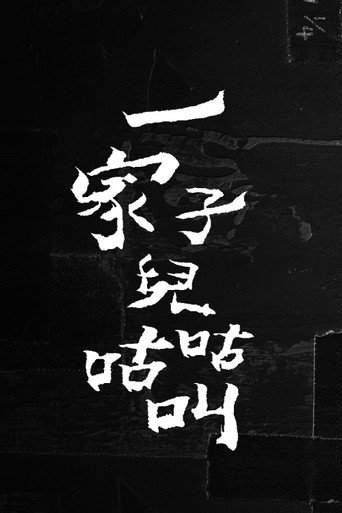 一
家子
兒
咕咕
叫